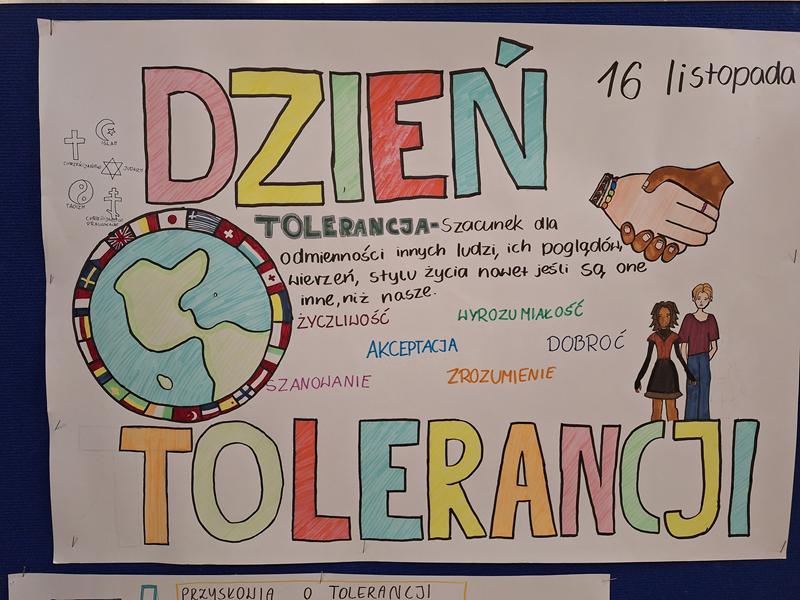 DZIEŃ
16 listopada
ISLAM
CHRZEŚCIJAŃSTWO
JUDAIZM
TAOIZM
TOLERANCJA-Szacunek dla
odmienności innych ludzi, ich poglądów,
wierzeń, stylu życia nawet jeśli są one
inne, niż nasze.
ŻYCZLIWOŚĆ
WYROZUMIAŁOŚĆ
AKCEPTACJA
DOBROĆ
SZANOWANIE
ZROZUMIENIE
TOLERANCJI
PRZYSŁOWIA O TOLERANCJI